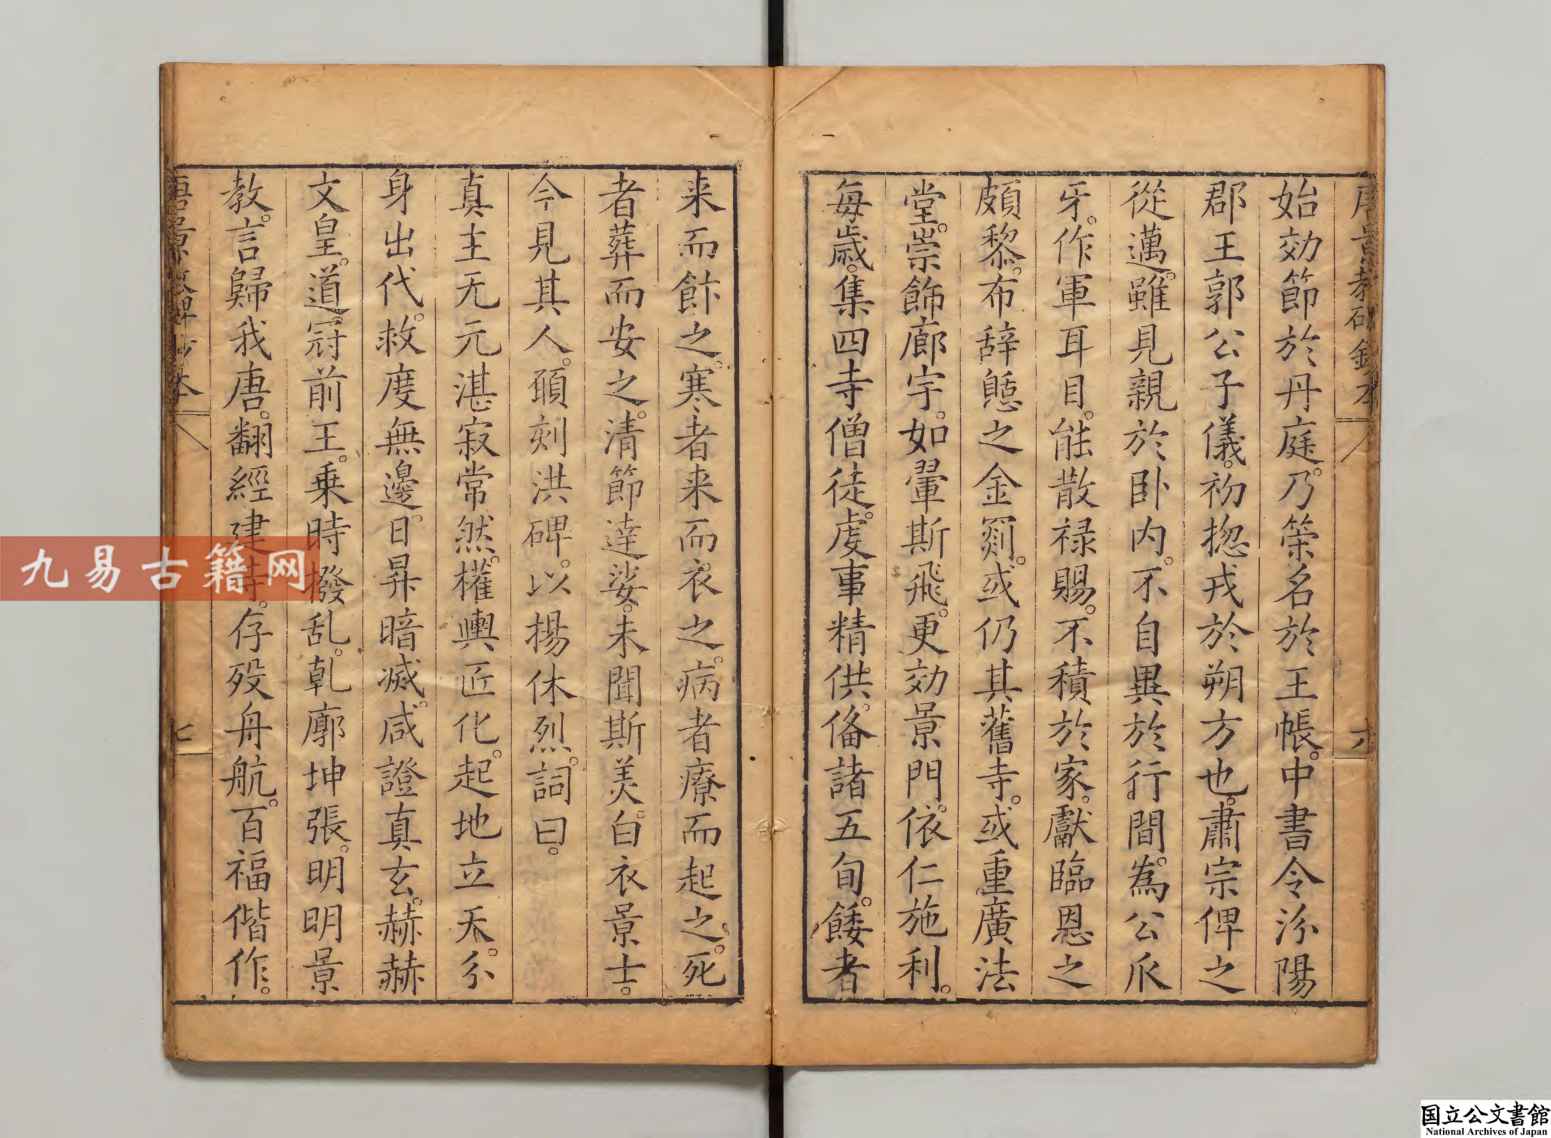 唐景教碑鈔本
六
始効節於丹庭。乃策名於王帳。中書令汾陽
郡王郭公子儀。初揔戎於朔方也。肅宗俾之
從邁。雖見親於卧内。不自異於行間。為公爪
牙。作軍耳目。能散禄賜。不積於家。獻臨恩之
頗黎。布辞憩之金罽。或仍其舊寺。或重廣法
堂。崇飾廊宇。如翬斯飛。更効景門。依仁施利。
每歳。集四寺僧徒。虔事精供。俻諸五旬。餧者
来而飰之。寒者来而衣之。病者療而起之。死
者葬而安之。清節達娑。未聞斯美。白衣景士。
今見其人。願刻洪碑。以揚休烈。詞曰。
真主无元湛寂常然。權輿匠化。起地立天。分
身出代。救度無邊。日昇暗滅。咸證真玄。赫赫
文皇。道冠前王。乗時撥乱。乹廓坤張。明明景
教。言歸我唐。翻經建寺。存殁舟航。百福偕作。
唐景教碑鈔本
七
九易古籍网
国立公文書館
National Archives of Japan